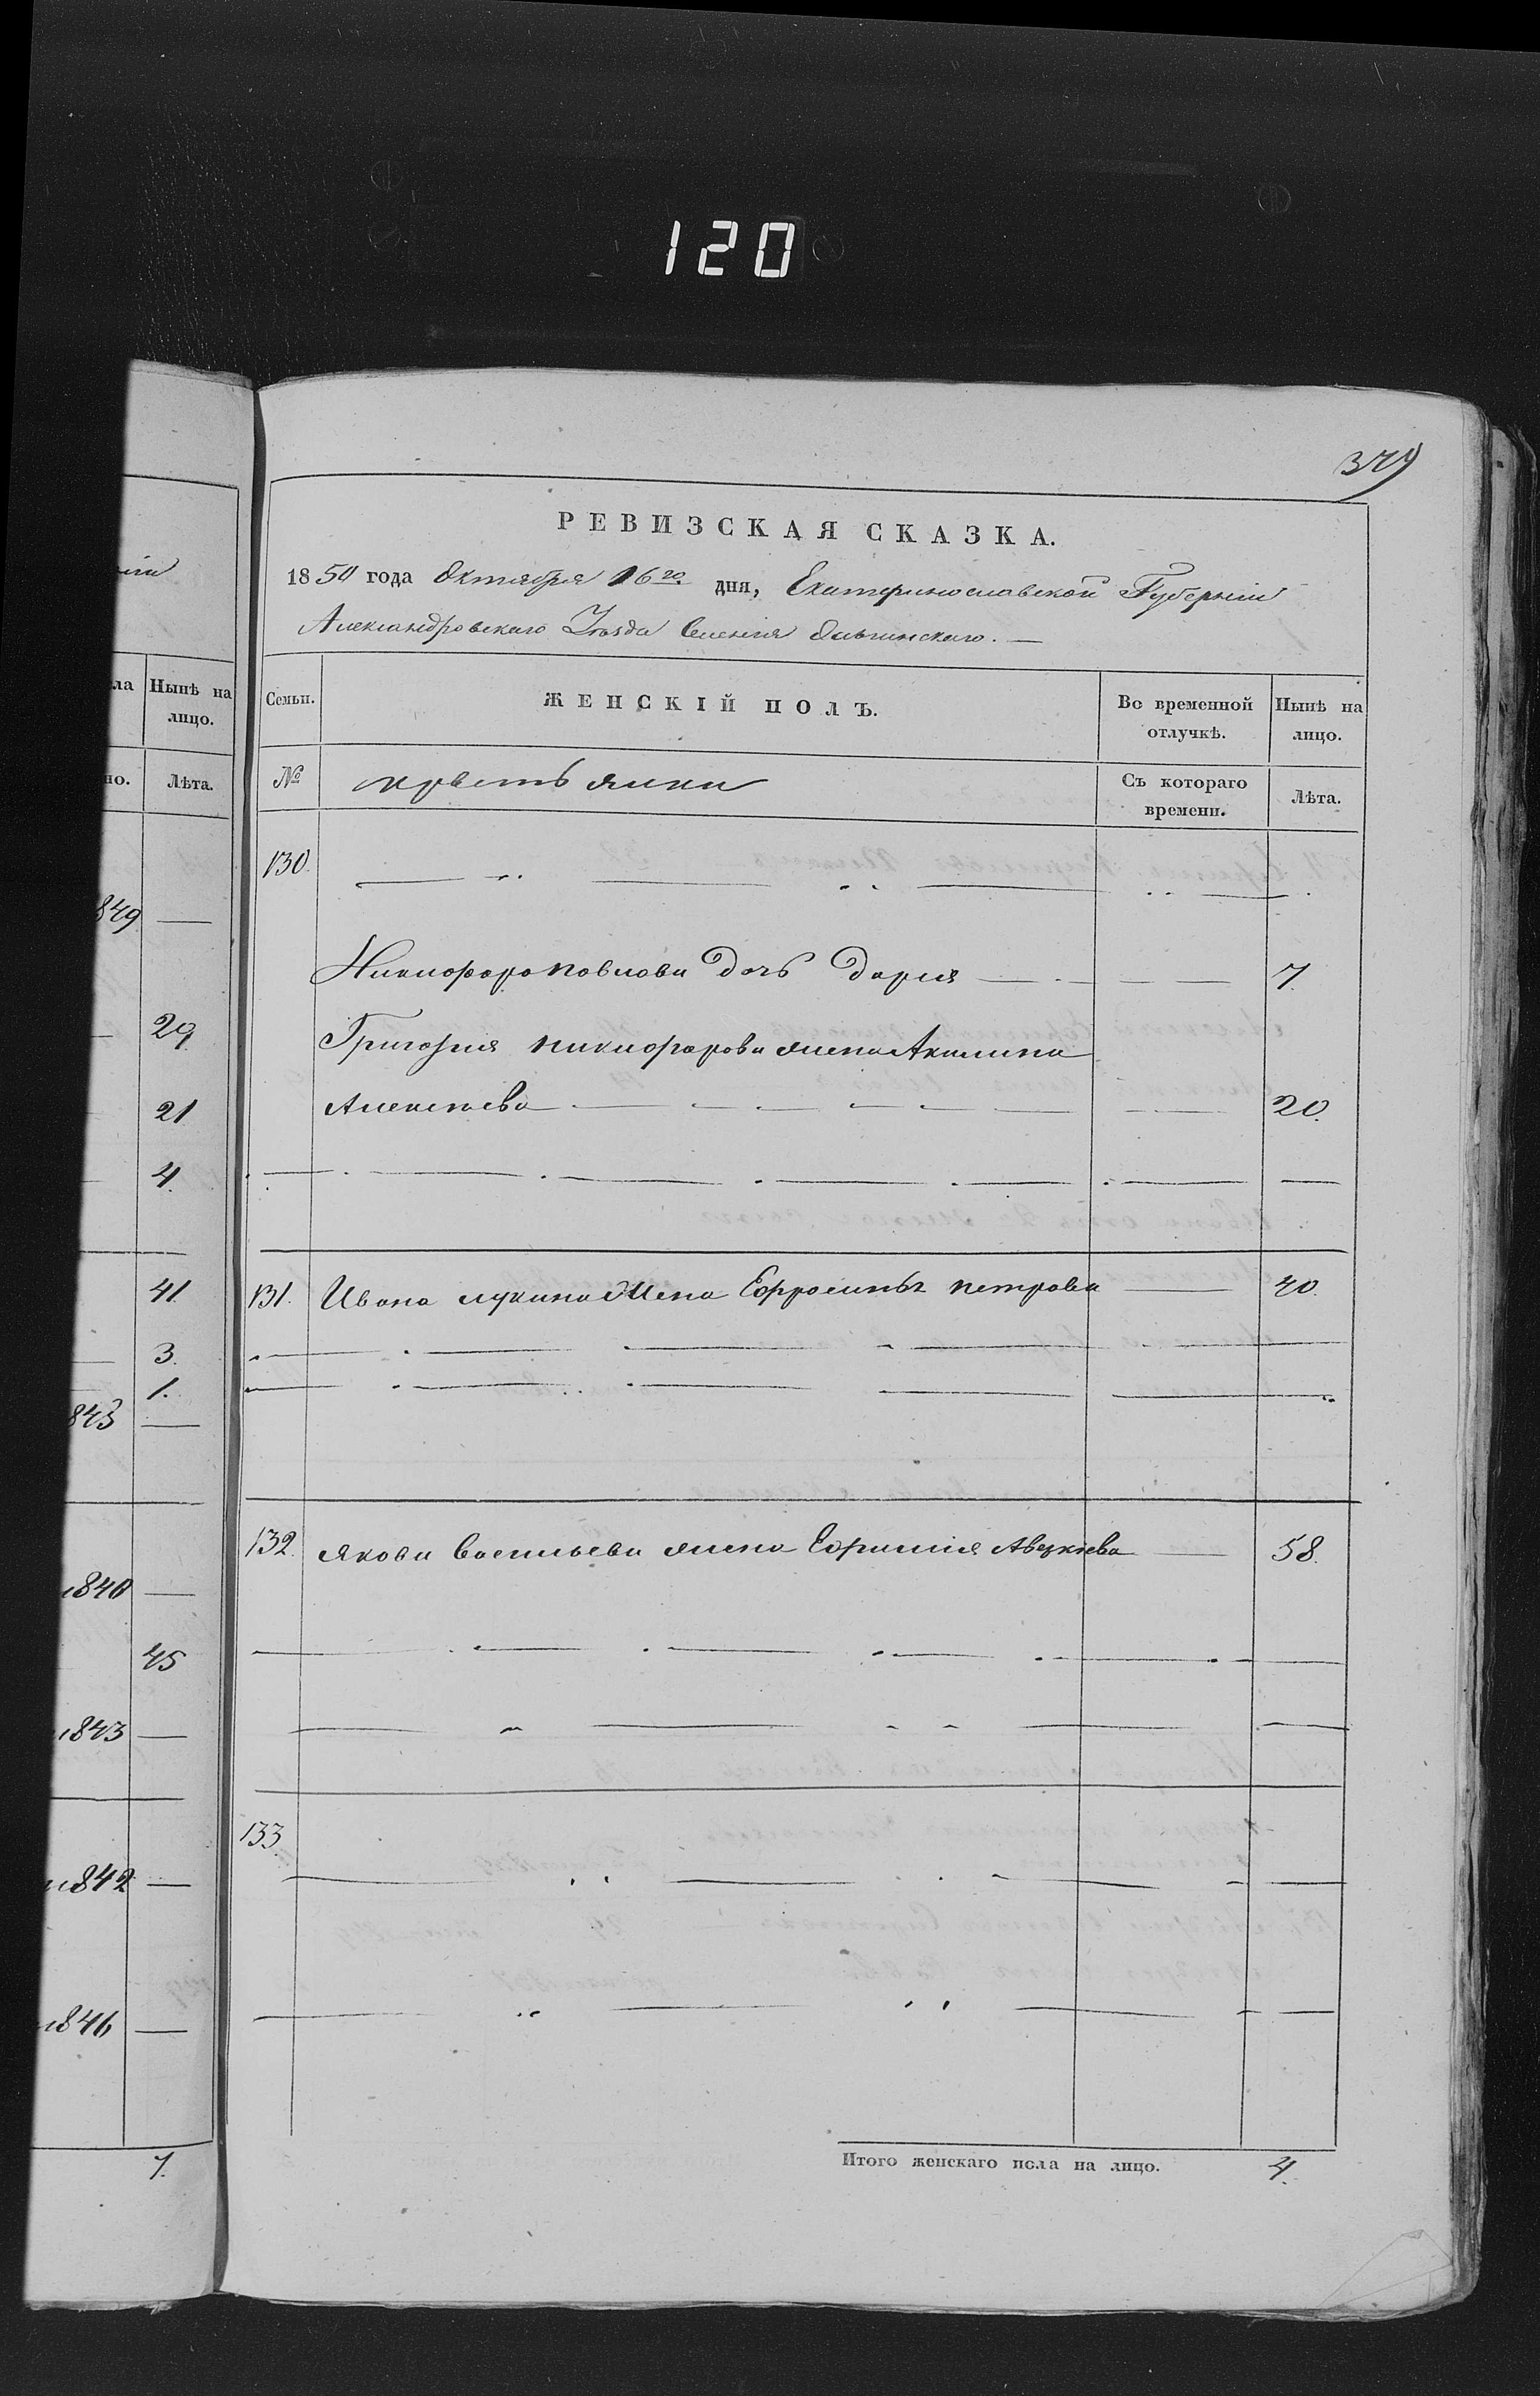 120
379
ній
ла
Нынѣ на
лицо.
но.
Лѣта.
849
29.
21
4.
41.
3.
1.
843
1840
45
1843
1842
1846
7.
РЕВИЗСКАЯ СКАЗКА.
1850 года Октября 16го дня, Екатеринославской Губерніи
Александровскаго Уѣзда Селенія
Семьи.
ЖЕНСКІЙ ПОЛЪ.
Во временной
отлучкѣ.
Нынѣ на
лицо.
№
крестьянки
Съ котораго
времени.
Лѣта.
130.
Никифора Павлова дочь Дарья 7.
Григорія Никифорова жена Акилина
Алексѣева 20.
131. Ивана Лукина жена Ефросинья Петрова 40.
132. Якова Васильева жена Ефимия 58.
133.
Итого женскаго пола на лицо. 4.